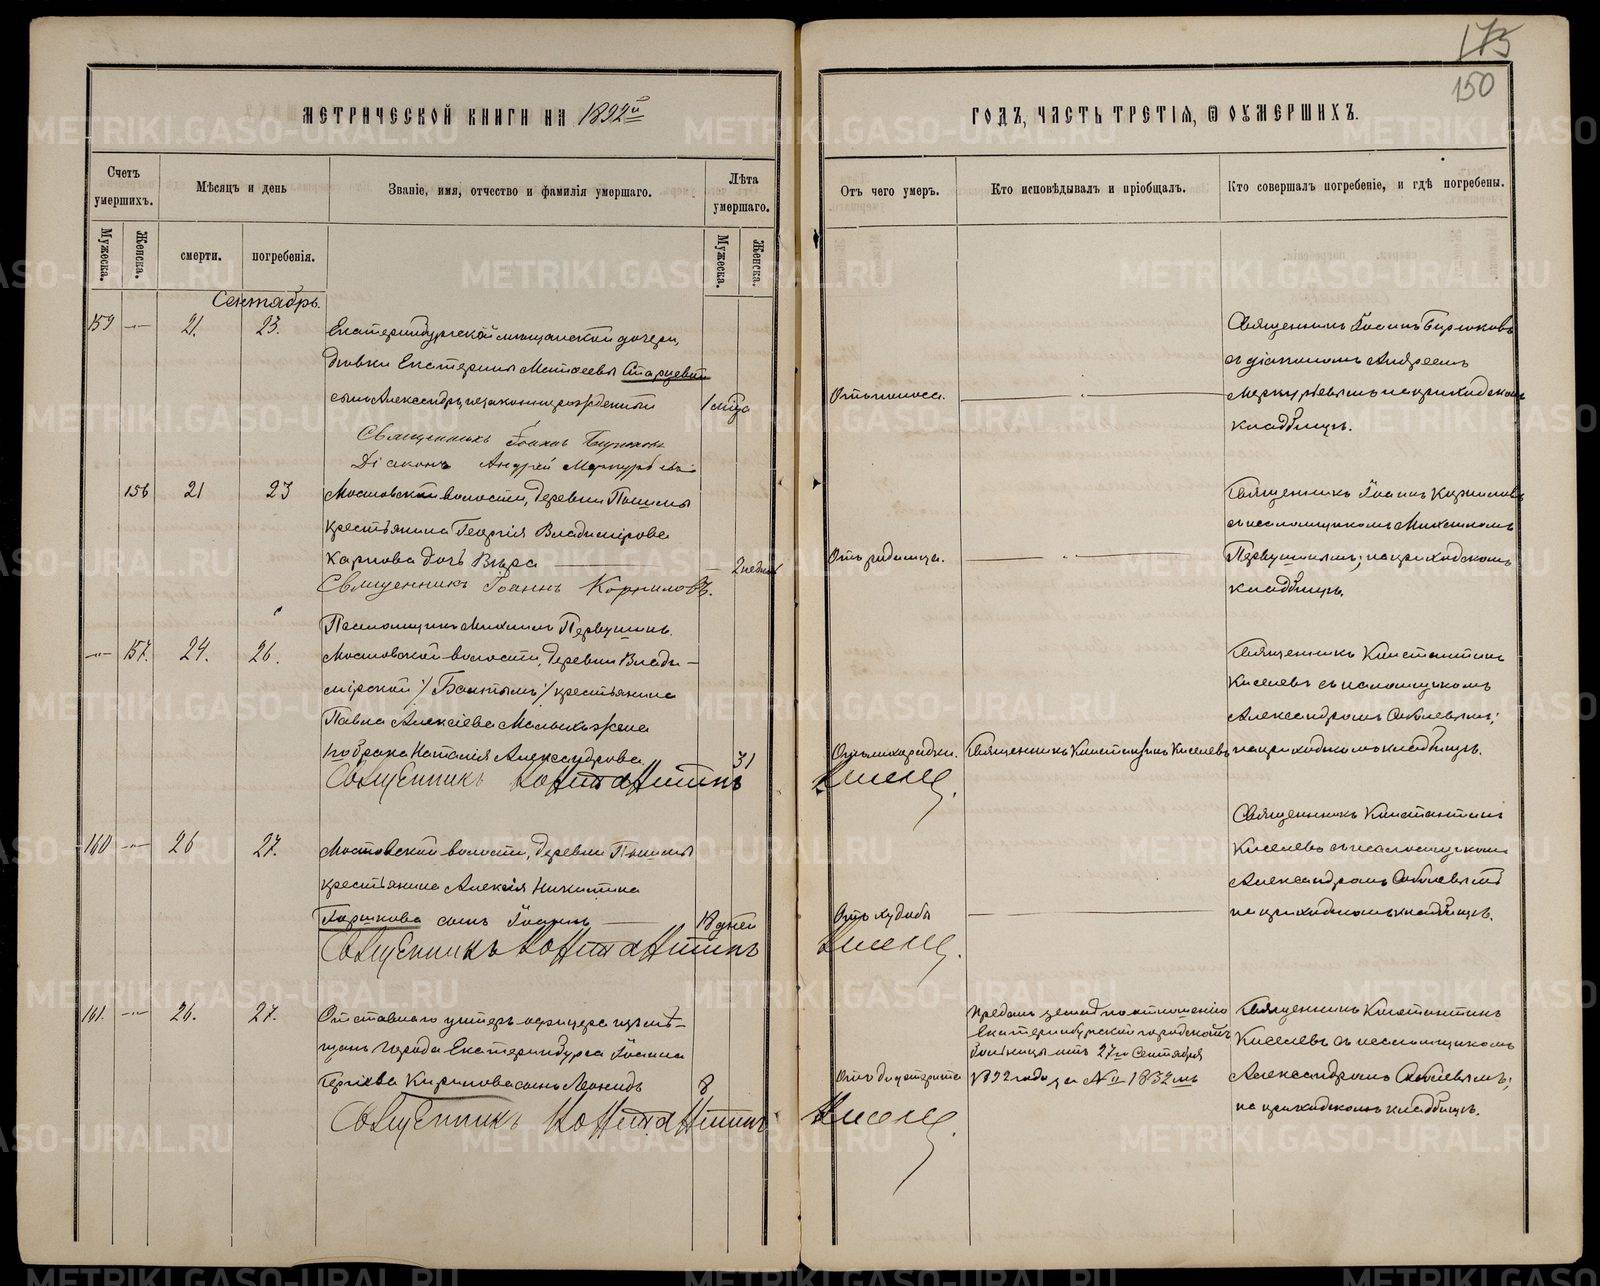 175
150
МЕТРИЧЕСКОЙ КНИГИ НА 1892й
ГОДЪ, ЧАСТЬ ТРЕТІЯ, Ѿ ОУМЕРШИХЪ.
Счетъ умершихъ.
Мѣсяцъ и день
Званіе, имя, отчество и фамилія умершаго.
Лѣта умершаго.
Отъ чего умеръ.
Кто исповѣдывалъ и пріобщалъ.
Кто совершалъ погребеніе, и гдѣ погребены.
Мужеска.
Женска.
смерти.
погребенія.
Мужеска.
Женска.
Сентябрь.
159 21. 23.
Екатеринбургской мѣщанской дочери,
дѣвки Екатерины Матѳеевы Старцевой
сынъ Александръ, незаконнорожденный
1 мѣца
Отъ поноса.
Священникъ Іоаннъ Бирюковъ
съ діакономъ Андреемъ
Меркурьевымъ на приходскомъ
кладбищѣ.
Священникъ Іоаннъ Бирюковъ
Діаконъ Андрей Меркурьевъ
156 21 23
Мостовской волости, деревни Пышмы
крестьянина Георгія Владимірова
Карпова дочь Вѣра
2 недѣли
Отъ родимца.
Священникъ Іоаннъ Корниловъ
съ псаломщикомъ Михаиломъ
Первушинымъ; на приходскомъ
кладбищѣ.
Священникъ Іоаннъ Корниловъ.
Псаломщикъ Михаилъ Первушинъ.
157. 24. 26.
Мостовской волости, деревни Влади-
мірской /Балтымъ/ крестьянина
Павла Алексіева Малыхъ жена
1го брака Наталія Александрова
31
Отъ лихорадки.
Священникъ Константинъ Киселевъ
Священникъ Константинъ
Киселевъ съ псаломщикомъ
Александромъ Соболевымъ;
на приходскомъ кладбищѣ.
Священникъ Константинъ Киселевъ.
160 26 27.
Мостовской волости, деревни Пышмы
крестьянина Алексія Никитина
Паршкова сынъ Іоаннъ
18 дней
Отъ худобы
Священникъ Константинъ
Киселевъ съ псаломщикомъ
Александромъ Соболевымъ
на приходскомъ кладбищѣ.
Священникъ Константинъ Киселевъ.
161. 26. 27.
Отставнаго унтеръ-офицера изъ мѣ-
щанъ города Екатеринбурга Іоанна
Гергіева Кирилова сынъ Леонидъ
8
Отъ дифтерита
Преданъ землѣ по отношенію
Екатеринбургской городской
больницы отъ 27го Сентября
1892 года за № 1832мъ
Священникъ Константинъ
Киселевъ съ псаломщикомъ
Александромъ Соболевымъ;
на приходскомъ кладбищѣ.
Священникъ Константинъ Киселевъ.
METRIKI.GASO-URAL.RU